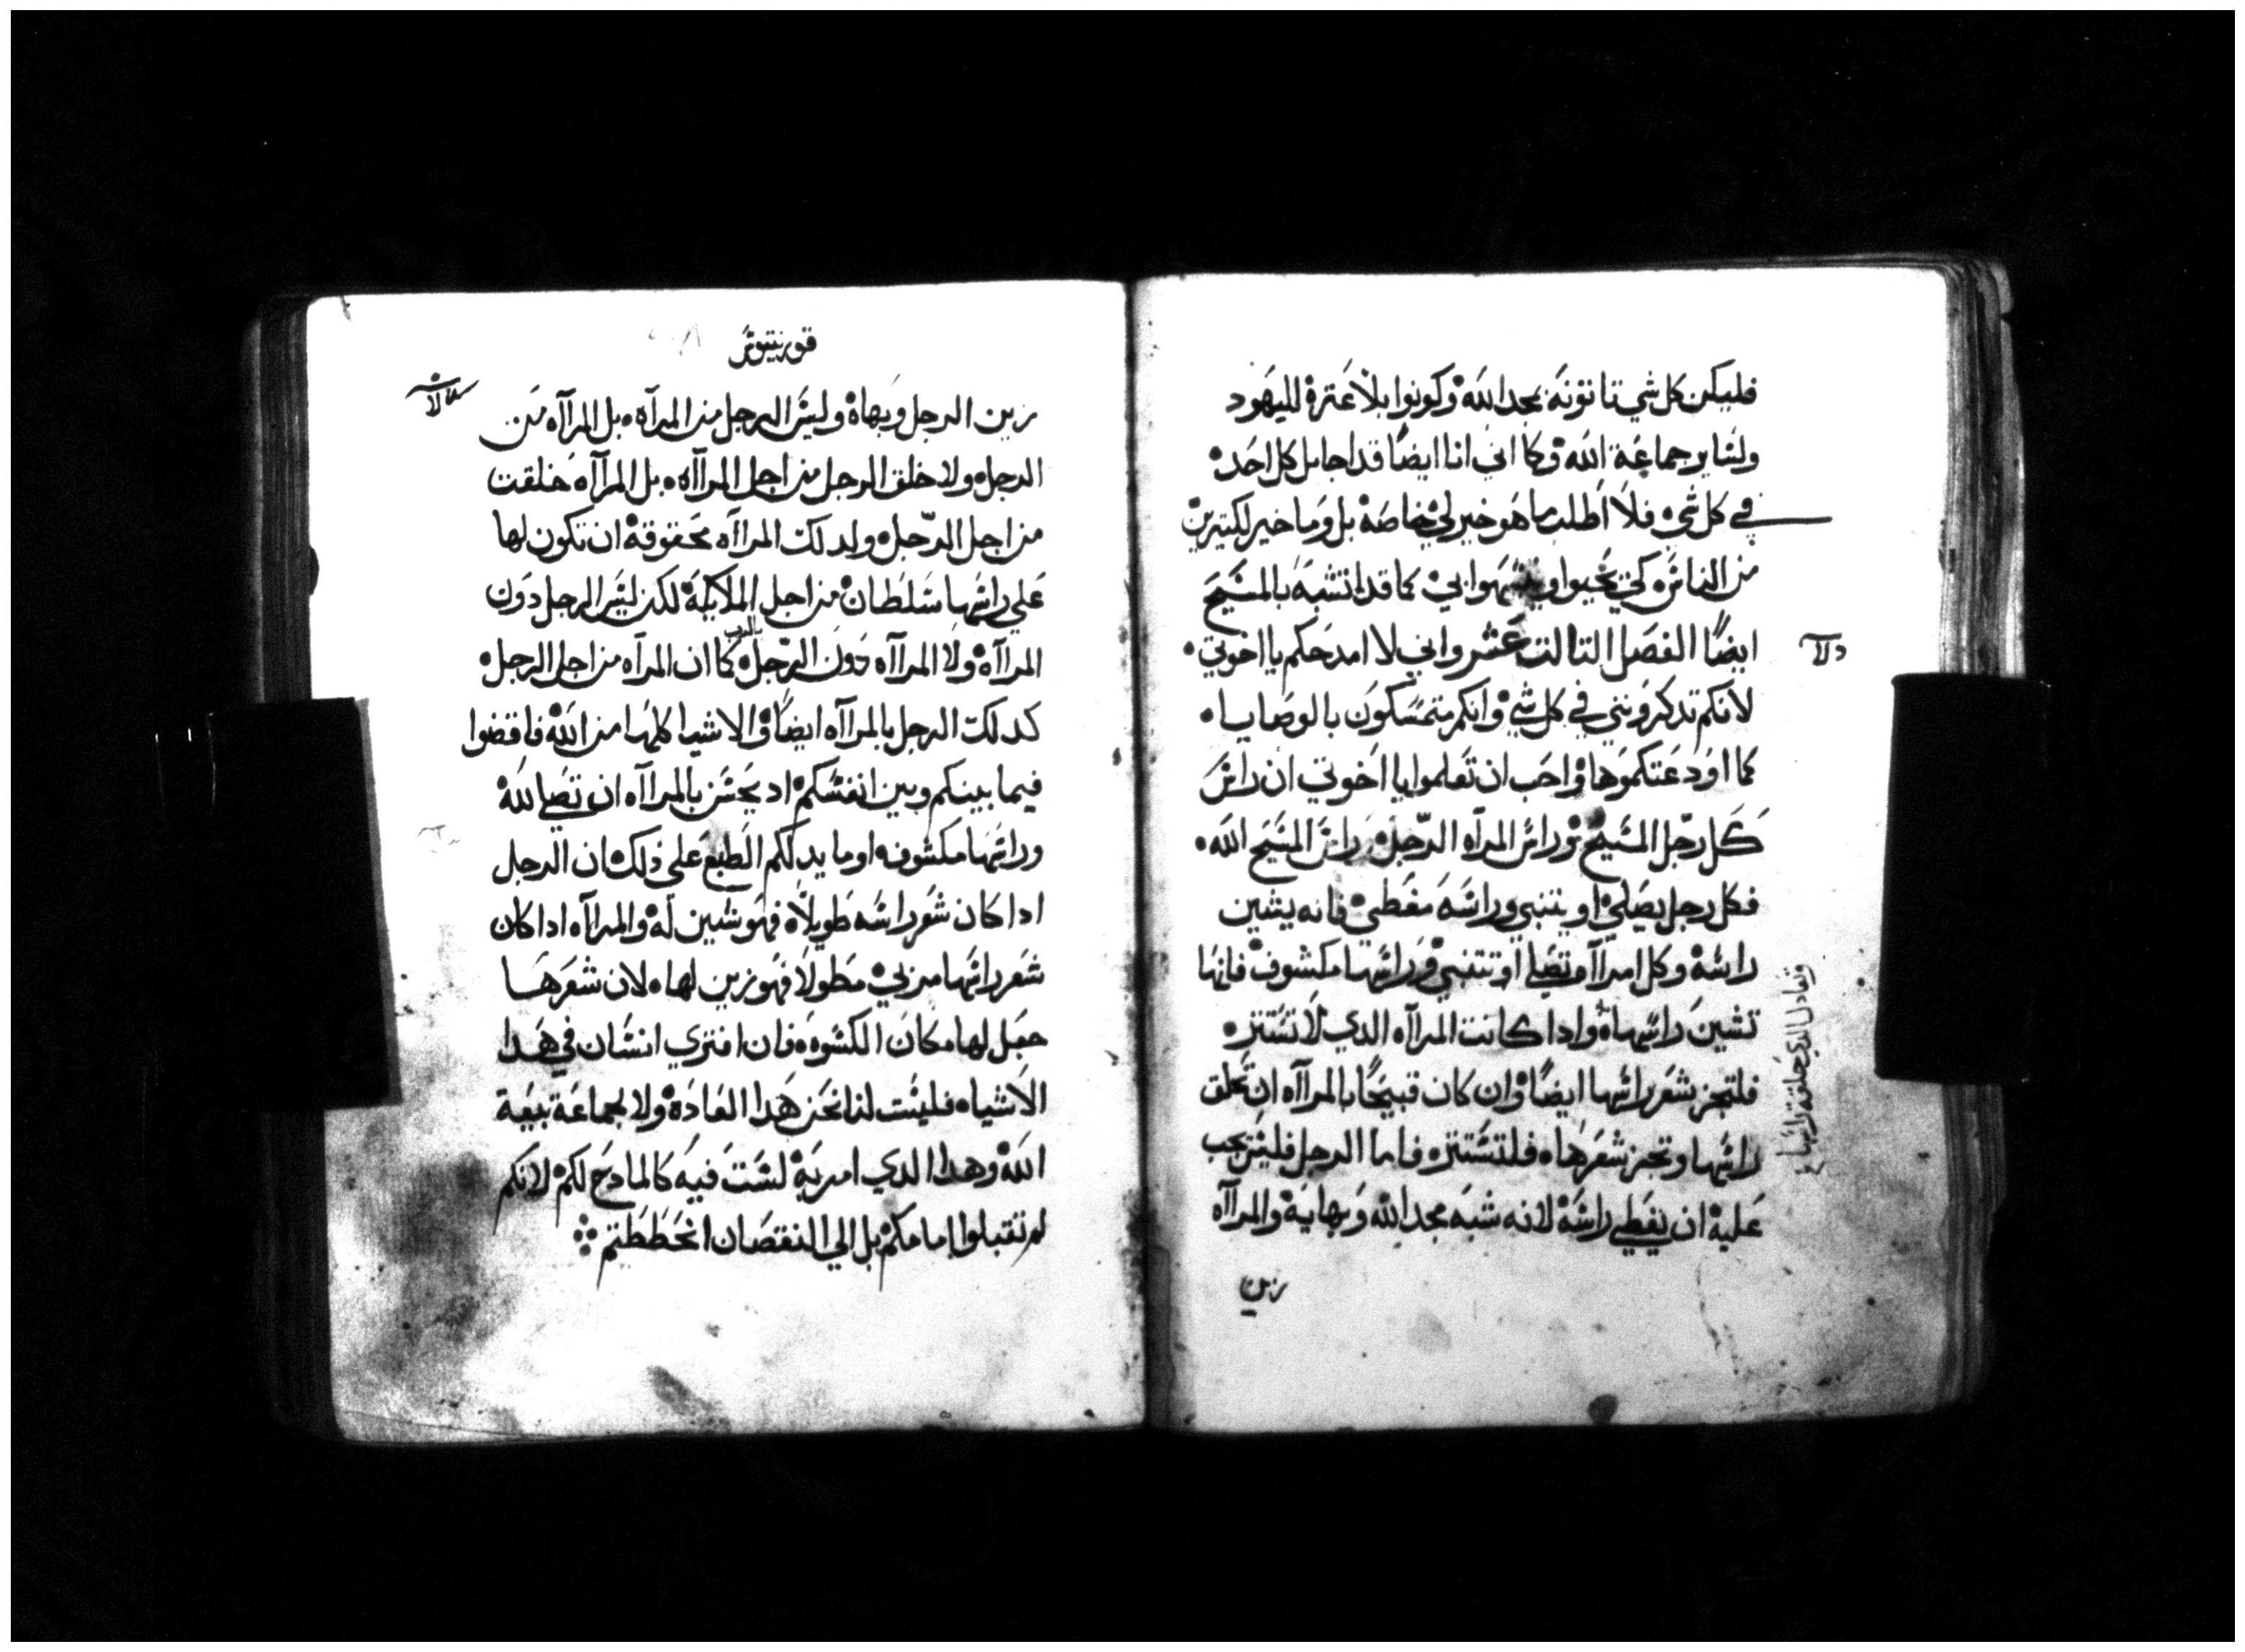 فليكن كل شي تاتونه بمجد الله وكونوا بلا عترة لليهود
ولساير جماعة الله وكما اني انا ايضا قد اجامل كل احد
في كل شي فلا اطلب ما هو خير لي خاصة بل وما خير لكتيرين
من الناس كي يحيوا وتشبهوا بي كما قد اتشبه بالمسيح
ايضا الفصل التالت عشر واني لا امدحكم يا اخوتي
لانكم تدكرونني في كل شي وانكم متمسكون بالوصايا
كما اودعتكموها واحب ان تعلموا يا اخوتي ان راس
كل رجل المسيح وراس المرآه الرجل وراس المسيح الله
فكل رجل يصلي او يتنبي وراسه مغطي فانه يشين
راسه وكل امرآاه تصلي او تتنبي وراسها مكشوف فانها
تشين راسها واداكانت المراآه الدي لا تستتر
فلتجز شعر راسها ايضا وان كان قبيحا بالمراآه ان تحلق
راسها وتجز شعرها فلتستتر فاما الرجل فليس يجب
عليه ان يغطي راسه لانه شبه مجد الله وبهايه والمراآه
زين
وتعادل الدي حلقت راسها
قورنتيوس
زين الرجل وبهاه وليس الرجل من المرآه بل المراآه من
الرجل ولا خلق الرجل من اجل المراآه بل المرآاه خلقت
من اجل الرجل ولدلك المراآه محقوقة ان تكون لها
علي راسها سلطان من اجل الملايكة لكن ليس الرجل دون
المراآه ولا المراآه دون الرجل بالرب كما ان المرآه من اجل الرجل
كدلك الرجل بالمراآه ايضا والاشيا كلها من الله فاقضوا
فيما بينكم وبين انفسكم اد يحسن بالمراآه ان تصلي لله
وراسها مكشوف او ما يدلكم الطبع علي ذلك ان الرجل
اداكان شعر راسه طويلا فهو شين له والمراآه اداكان
شعر راسها مربي مطولا فهو زين لها لان شعرها
جعل لها مكان الكسوه فان افتري انسان في هدا
الاشيا فليست لنا نحن هدا العادة ولا لجماعة بيعة
الله وهدا الدي امر به لست فيه كالمادح لكم لانكم
لم تقبلوا امامكم بل الي النقصان انحططتم